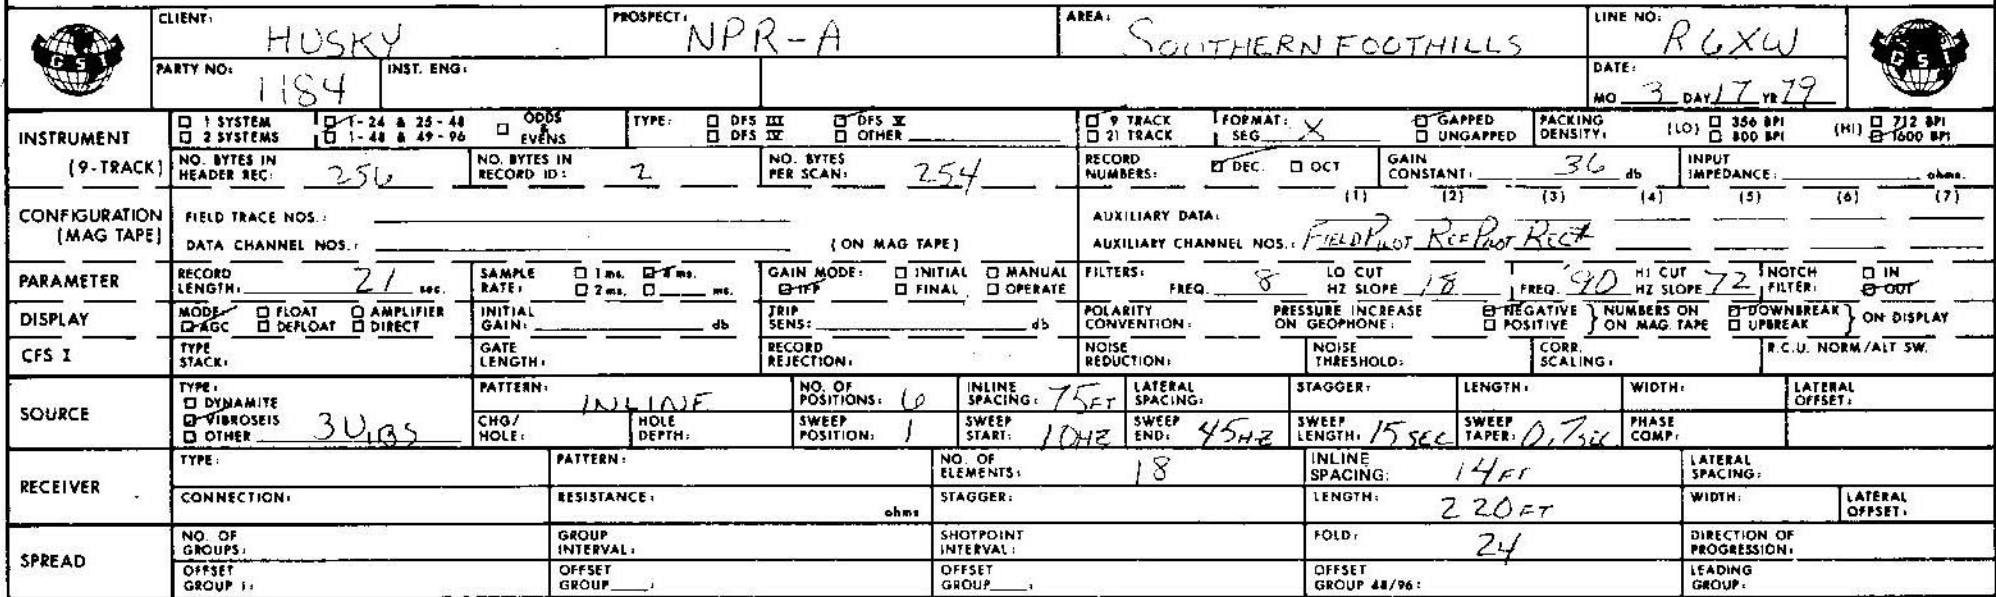 CLIENT: HUSKY PROSPECT: NPR-A AREA: SOUTHERN FOOTHILLS LINE NO: R6XW
GSI GSI
PARTY NO: 1184 INST. ENG: DATE:
MO 3 DAY 17 YR 79
INSTRUMENT (9-TRACK)
1 SYSTEM 1-24 & 25-48 ODDS & EVENS TYPE: DFS III DFS V 9 TRACK FORMAT: GAPPED PACKING DENSITY: (LO) 356 BPI (HI) 712 BPI
2 SYSTEMS 1-48 & 49-96 DFS IV OTHER 21 TRACK SEG X UNGAPPED 800 BPI 1600 BPI
NO. BYTES IN HEADER REC: 256 NO. BYTES IN RECORD ID: 2 NO. BYTES PER SCAN: 254 RECORD NUMBERS: DEC. OCT GAIN CONSTANT: 36 db INPUT IMPEDANCE: ohms.
CONFIGURATION (MAG TAPE)
(1) (2) (3) (4) (5) (6) (7)
FIELD TRACE NOS.: AUXILIARY DATA:
DATA CHANNEL NOS.: (ON MAG TAPE) AUXILIARY CHANNEL NOS.: FIELD PILOT REF PILOT REC#
PARAMETER RECORD LENGTH: 21 sec. SAMPLE RATE: 1 ms. 4 ms. 2 ms. ms. GAIN MODE: INITIAL MANUAL IFP FINAL OPERATE FILTERS: FREQ. 8 LO CUT HZ SLOPE 18 FREQ. 90 HI CUT HZ SLOPE 72 NOTCH FILTER: IN OUT
DISPLAY MODE: FLOAT AMPLIFIER AGC DEFLOAT DIRECT INITIAL GAIN: db TRIP SENS: db POLARITY CONVENTION: PRESSURE INCREASE ON GEOPHONE: NEGATIVE POSITIVE NUMBERS ON ON MAG. TAPE DOWNBREAK UPBREAK ON DISPLAY
CFS I TYPE STACK: GATE LENGTH: RECORD REJECTION: NOISE REDUCTION: NOISE THRESHOLD: CORR. SCALING: R.C.U. NORM/ALT SW.
SOURCE TYPE: DYNAMITE VIBROSEIS OTHER 3 VIBS
PATTERN: INLINE NO. OF POSITIONS: 6 INLINE SPACING: 75FT LATERAL SPACING: STAGGER: LENGTH: WIDTH: LATERAL OFFSET:
CHG/HOLE: HOLE DEPTH: SWEEP POSITION: 1 SWEEP START: 10HZ SWEEP END: 45HZ SWEEP LENGTH: 15 SEC SWEEP TAPER: 0.7SEC PHASE COMP:
RECEIVER TYPE: PATTERN: NO. OF ELEMENTS: 18 INLINE SPACING: 14FT LATERAL SPACING:
CONNECTION: RESISTANCE: ohms STAGGER: LENGTH: 220FT WIDTH: LATERAL OFFSET:
SPREAD NO. OF GROUPS: GROUP INTERVAL: SHOTPOINT INTERVAL: FOLD: 24 DIRECTION OF PROGRESSION:
OFFSET GROUP 1: OFFSET GROUP : OFFSET GROUP : OFFSET GROUP 48/96: LEADING GROUP: